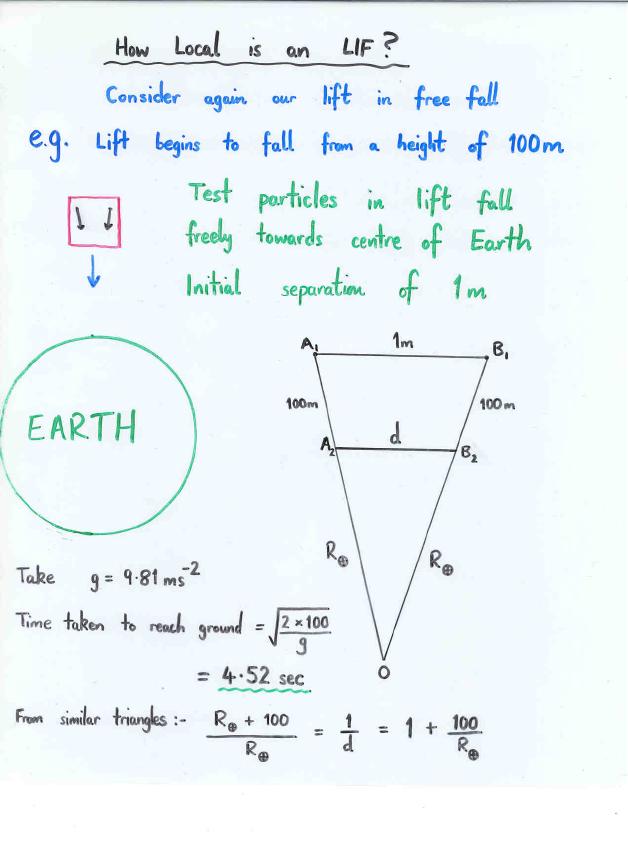 How Local is an LIF?
Consider again our lift in free fall
e.g. Lift begins to fall from a height of 100m
Test particles in lift fall
freely towards centre of Earth
Initial separation of 1m
A₁ 1m B₁
100m 100m
A₂ d B₂
EARTH
R⊕ R⊕
O
Take g = 9.81 ms⁻²
Time taken to reach ground = √(2×100/g)
= 4.52 sec
From similar triangles :- (R⊕ + 100)/R⊕ = 1/d = 1 + 100/R⊕